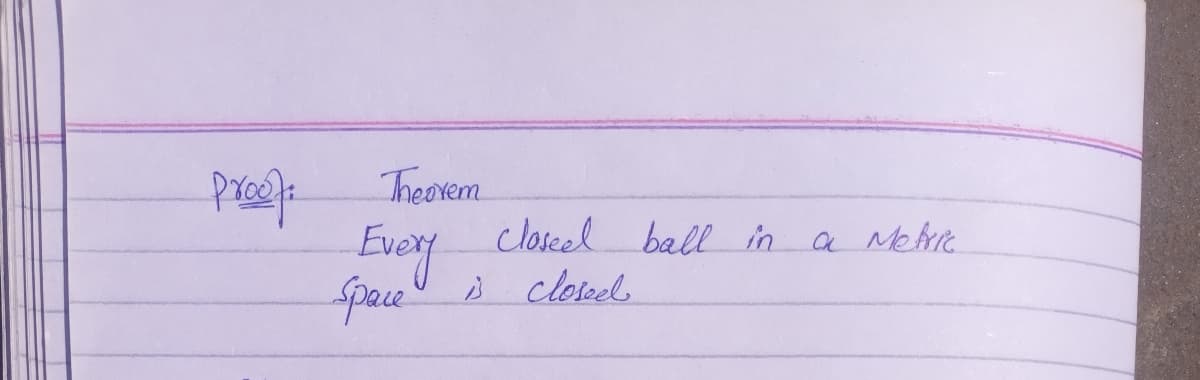 Proof: Theorem
Every closed ball in a Metric
space is closed